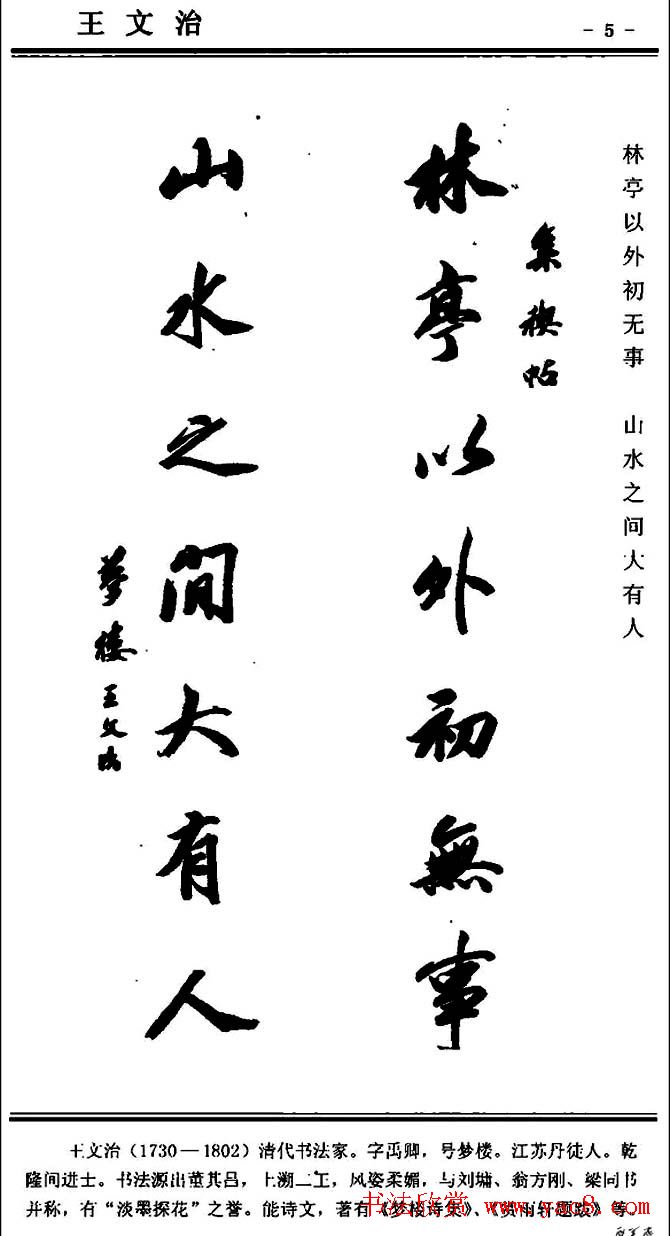 王文治
- 5 -
林亭以外初无事 山水之间大有人
集禊帖
林亭以外初無事
山水之間大有人
夢樓王文治
王文治（1730—1802）清代书法家。字禹卿，号梦楼。江苏丹徒人。乾
隆间进士。书法源出董其昌，上溯二王，风姿柔媚，与刘墉、翁方刚、梁同书
并称，有“淡墨探花”之誉。能诗文，著有《梦楼诗集》、《赏雨轩题跋》等。
书法欣赏 www.yac8.com